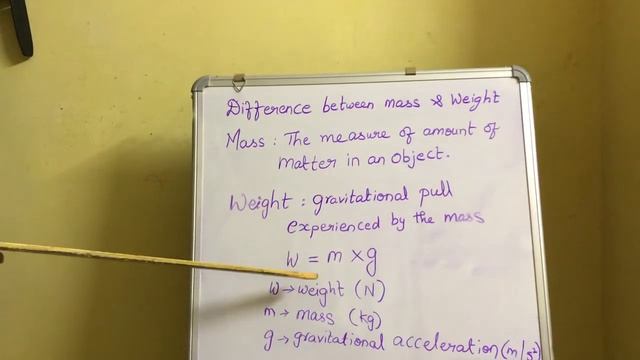 Difference between mass & Weight
Mass : The measure of amount of
matter in an object.
Weight : gravitational pull
experienced by the mass
W = m × g
W → weight (N)
m → mass (kg)
g → gravitational acceleration (m/s²)